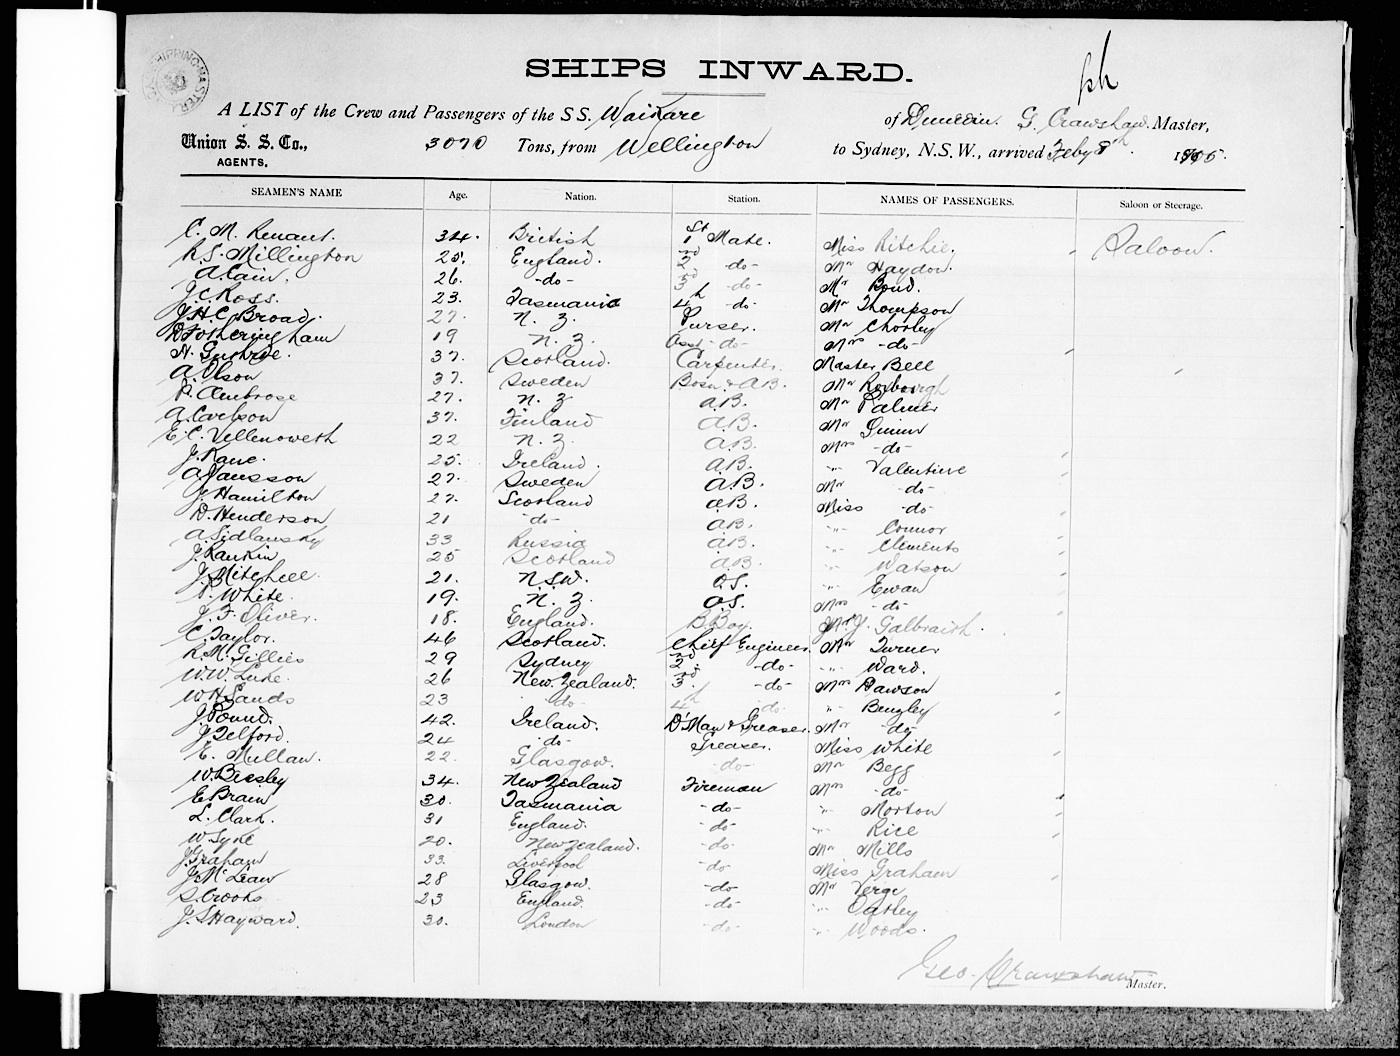 SHIPPING MASTER
SHIPS INWARD.
A LIST of the Crew and Passengers of the SS. Waikare of Dunedin. G. Crawshaw. Master,
Union S. S. Co., AGENTS, 3070 Tons, from Wellington to Sydney, N.S.W., arrived Feby 8th. 1905.
SEAMEN'S NAME Age. Nation. Station. NAMES OF PASSENGERS. Saloon or Steerage.
C. M. Renaut. 34. British 1st Mate. Miss Ritchie, Saloon.
R. S. Millington 25. England. 2nd -do- Mr Haydon.
A. Cain. 26. -do- 3rd -do- Mr Bond.
J. C. Ross. 23. Tasmania 4th -do- Mr Thompson
J. H. C. Broad. 27. N. Z. Purser. Mr Chorley
D Fotheringham 19 N. Z. Asst -do- Mrs -do-
H. Guthrie. 37. Scotland. Carpenter. Master Bell
A. Olson 37. Sweden Bosn & A.B. Mr Roxborogh
P. Ambrose 27. N. Z A.B. Mr Palmer
A. Carlson 37. Finland A.B. Mr Gunn
E. C. Vellenoweth 22 N. Z. A.B. Mrs -do-
J. Kane. 25. Ireland. A.B. " Valentine
A. Jansson 27. Sweden A.B. Mr -do-
J. Hamilton 27. Scotland A.B. Miss -do-
D. Henderson 21 -do- A.B. " Connor
A. Sidlansky 33 Russia A.B. " Clements
J. Rankin 25 Scotland A.B. " Watson
J. Mitchell 21. N.S.W. O.S. " Ewan
P. White. 19. N. Z. O.S. Mrs -do-
J. F. Oliver. 18. England. B. Boy. Mr J. Galbraith.
C. Taylor. 46 Scotland. Chief Engineer. Mr Turner
R. M. Gillies 29 Sydney 2nd -do- " Ward.
W. W. Luke. 26 New Zealand. 3rd. -do- Mrs Dawson
W. H. Sands 23 do- 4th do- " Bengley
J. Pound. 42. Ireland. D'Man & Greaser. Mr -do-
J. Telford. 24 -do- Greaser. Miss White
E. Mullan. 22. Glasgow. -do- Mr Begg
W. Beesley 34. New Zealand Fireman Mrs -do-
E. Brain 30. Tasmania -do- " Morton
L. Clark. 31 England. -do- " Rice
W Syne 20. New Zealand. -do- Mr Mills
J Graham 33. Liverpool -do Miss Graham
J. McLean 28 Glasgow. -do- Mr Verge
S. Crooks 23 England. -do- " Oatley
J. S. Hayward. 30. London -do- " Woods.
Geo. Crawshaw
Master.